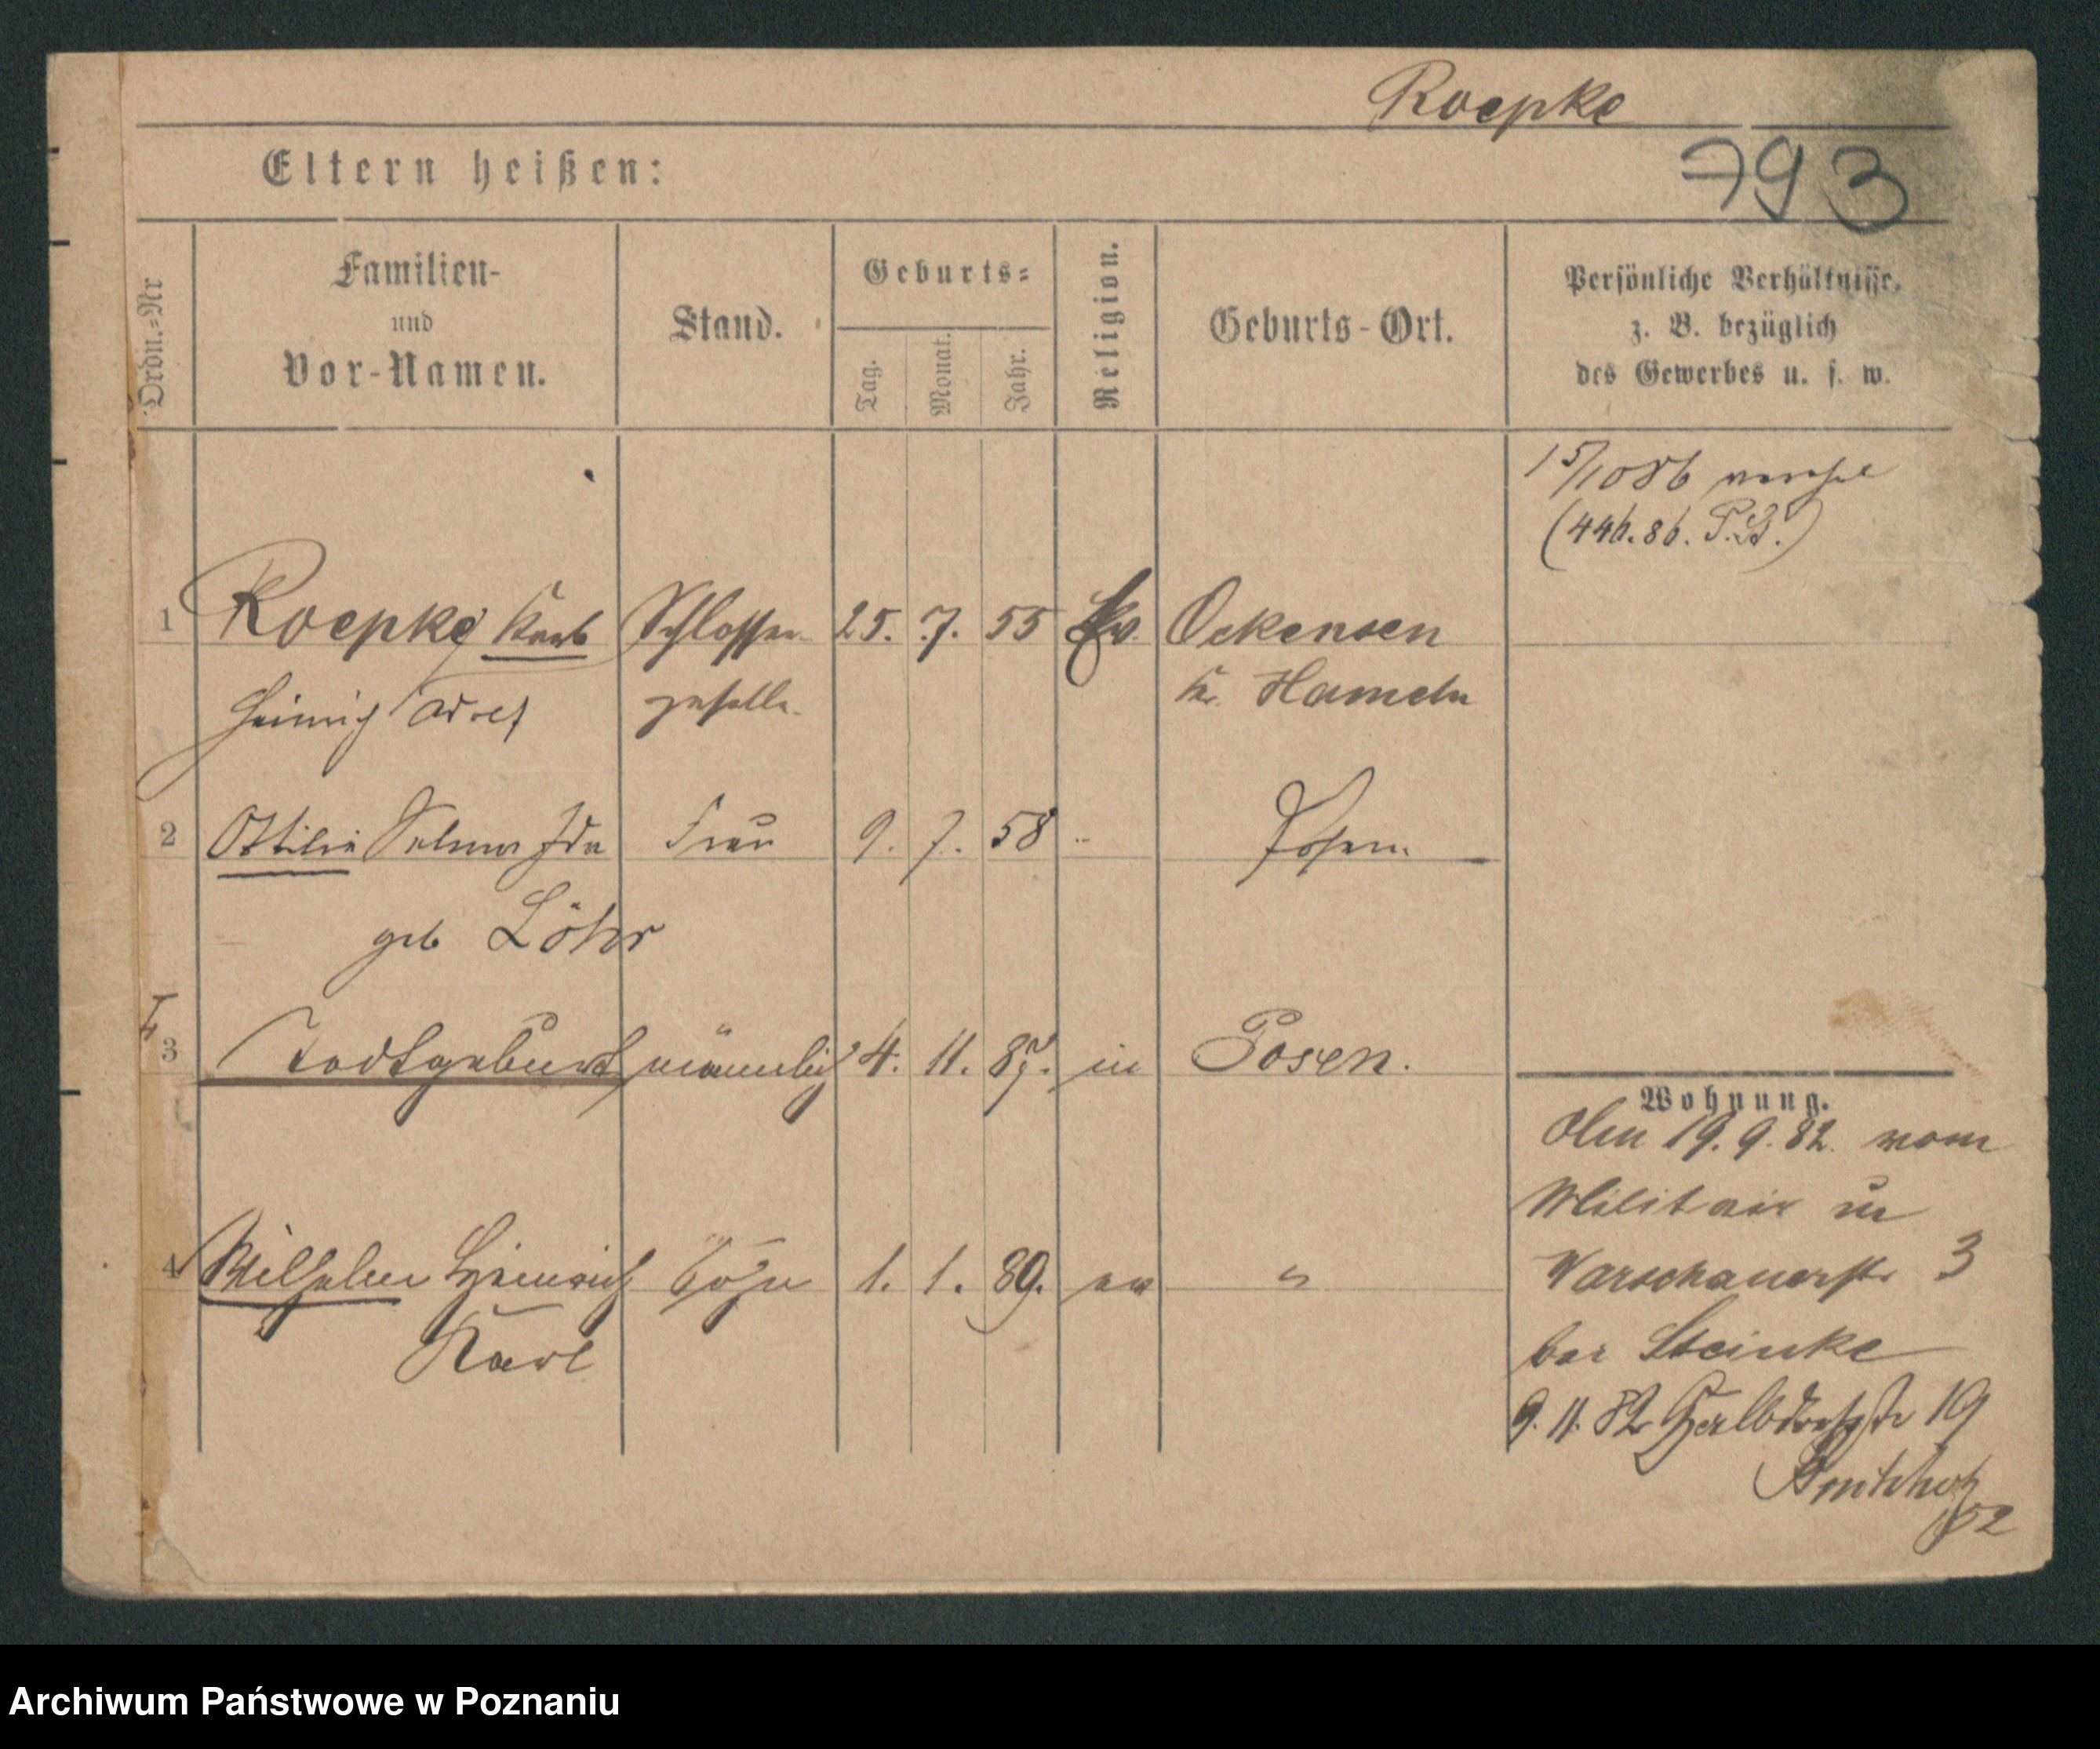 Roepke
793
Eltern heißen:
Ordn.=Nr
Familien-
und
Vor-Namen.
Stand.
Geburts=
Tag.
Monat.
Jahr.
Religion.
Geburts-Ort.
Persönliche Verhältnisse,
z. B. bezüglich
des Gewerbes u. s. w.
15/10 86
(446.86. P.B.)
1 Roepke Karl Schlosser- 25. 7. 55 Ev. Ockensen
Heinrich Adolf geselle. Kr. Hameln
2 Ottilie Selma Ida Frau 9. 7. 58 " Posen
geb Löhr
3 Todtgeburt männlich 4. 11. 87. in Posen.
Wohnung.
Den 19.9.82. vom
Militair in
4 Wilhelm Heinrich Sohn 1. 1. 89. ev "
Karl
Warschauerstr 3
bei Steinke
9. 11. 82 Halbdorfstr 19